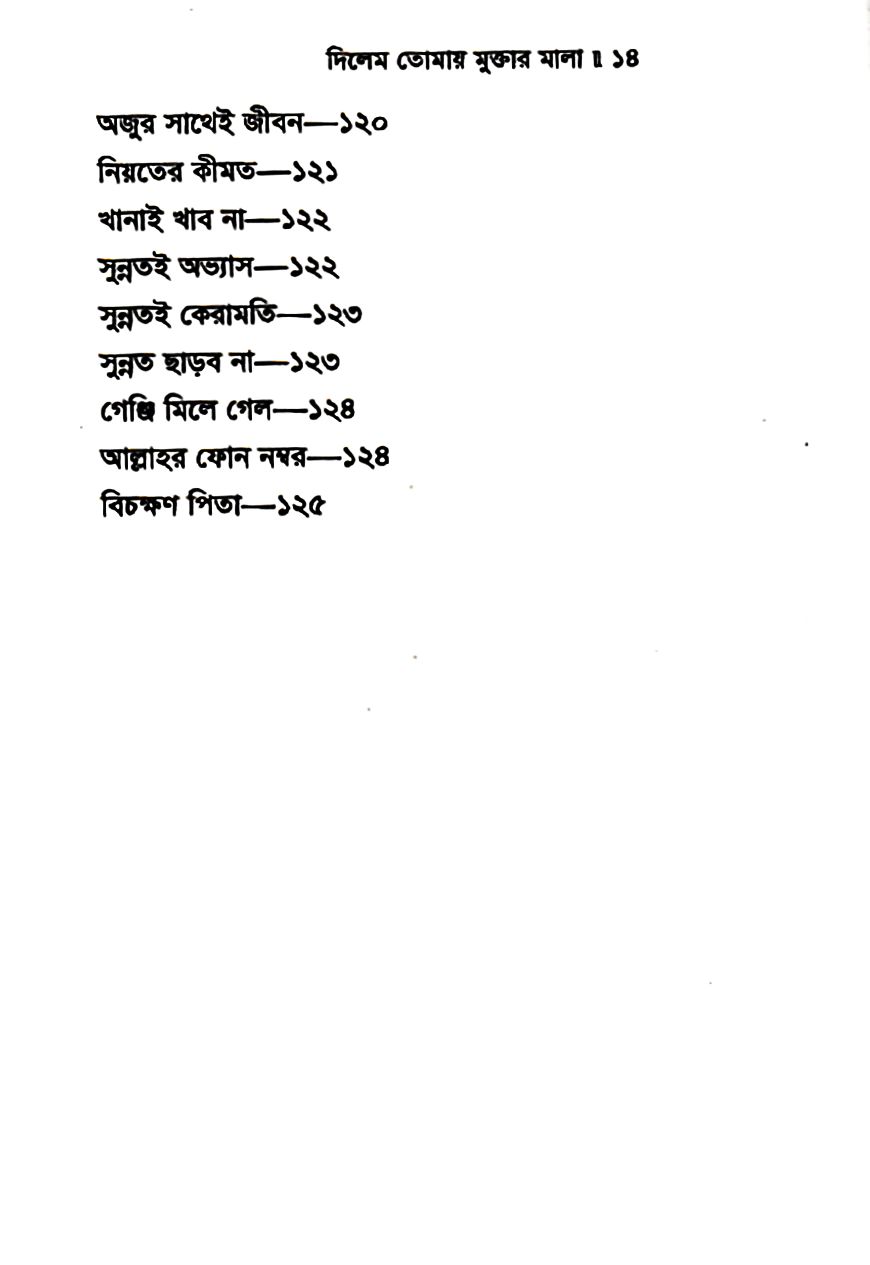 দিলেম তোমায় মুক্তার মালা ॥ ১৪
অজুর সাথেই জীবন—১২০
নিয়তের কীমত—১২১
খানাই খাব না—১২২
সুন্নতই অভ্যাস—১২২
সুন্নতই কেরামতি—১২৩
সুন্নত ছাড়ব না—১২৩
গেঞ্জি মিলে গেল—১২৪
আল্লাহর ফোন নম্বর—১২৪
বিচক্ষণ পিতা—১২৫